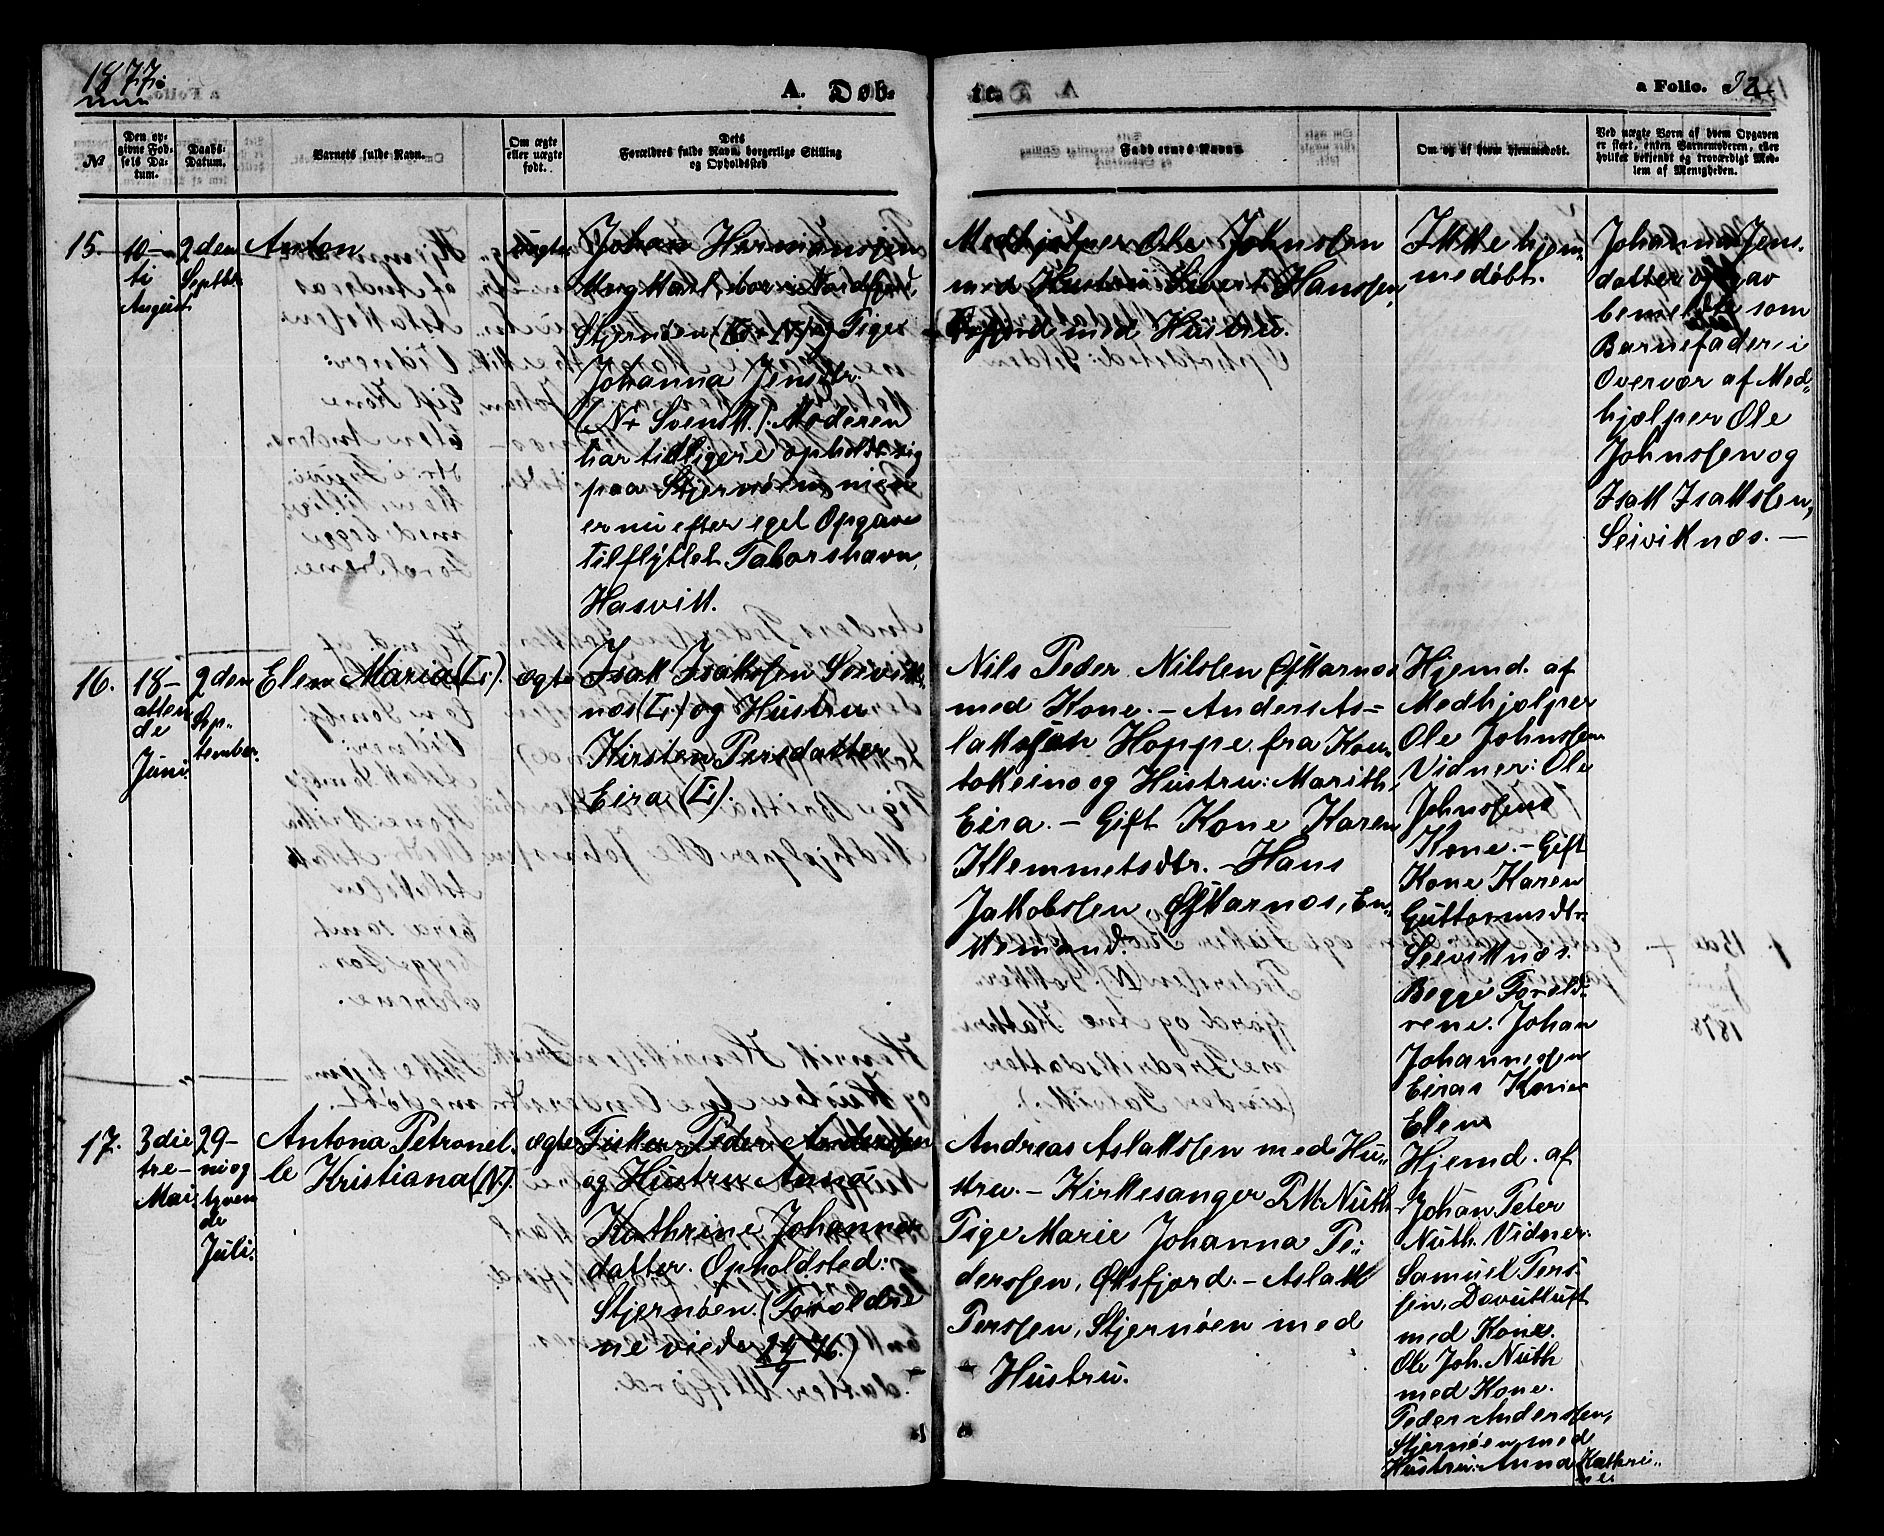 1877.
A. Døb-
te.
a Folio. 32.
No
Den op-
givne Fød-
sels Da-
tum.
Daabs-
Datum.
Barnets fulde Navn.
Om ægte
eller uægte
født.
Dets
Forældres fulde Navn, borgerlige Stilling
og Opholdssted
Faddernes Navne
Om og af hvem hjemmedøbt.
Ved uægte Børn af hvem Opgaven
er skeet, enten Barnemoderen, eller
hvilket bekjendt og troværdigt Med-
lem af Menigheden.
15.
10-
ti
August
2den
Septbr
Anton
uægte
Johan Hermansen
Ungkarl, bor i Nordfjord,
Stjernøen og Pige
Johanna Jensdtr.
(N+ Svensk). Moderen
har tidligere opholdt sig
paa Stjernøen, men
er nu efter eget Opgave
tilflyttet Taborshavn,
Hasvik.
Medhjælper Ole Johnsen
med Hustru Sivert Hanssen,
med Hustru.
Ikke hjem-
medøbt.
Johanna Jens-
datter opgav
bemeldte som
Barnefader i
Overvær af Med-
hjælper Ole
Johnsen og
Isak Isaksen,
Seiviknæs. —
16.
18-
atten
de
Juni
2den
Sep-
tember.
Elen Maria (L).
ægte
Isak Isaksen Seivik-
næs (L) og Hustru
Kirsten Persdatter
Eira (L).
Nils Peder Nilssen Øksarnæs
med Kone. – Anders As-
laksøn Hoppe fra Kou-
tokeino og Hustru: Marith
Eira. – Gift Kone Karen
Klemmetsdtr. – Hans
Jakobsen, Øksarnæs, En-
kemand.
Hjemd. af
Medhjælper
Ole Johnsen
Vidner: Ole
Johnsens
Kone. – Gift
Kone Karen
Guttormsdtr.
Seiviknæs.
Begge Foræld-
rene. Johan
Johannesen
Eiras Kone
Elen
17.
3die
tre-
Mai.
29-
ni og
tyven
de
Juli.
Antona Petronel-
le Kristiana (N).
ægte
Fisker Peder Andersen
og Hustru Anna
Kathrine Johannes-
datter. Opholdsted:
Stjernøen. (Forældre
ne viede 24/9 76.)
Andreas Aslaksen med Hu-
stru. – Kirkesanger P. M. Nuth
Pige Marie Johanna Pe-
dersen, Øksfjord. – Aslak
Persen, Stjernøen med
Hustru.
Hjemd. af
Johan Peter
Nuth. Vidner:
Samuel Pers-
sen, Davutluft
med Kone.
Ole Joh. Nuth
med Kone.
Peder Andersen,
Stjernøen med
Hustru: Anna Kathri-
ne